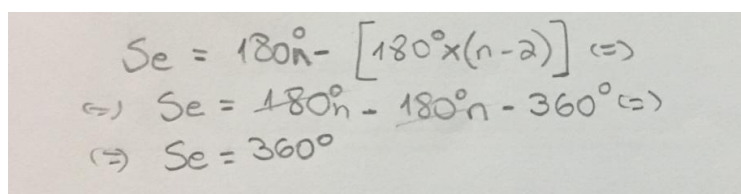 Se = 180°n - [180°x(n-2)] (=)
(=) Se = 180°n - 180°n - 360° (=)
(=) Se = 360°